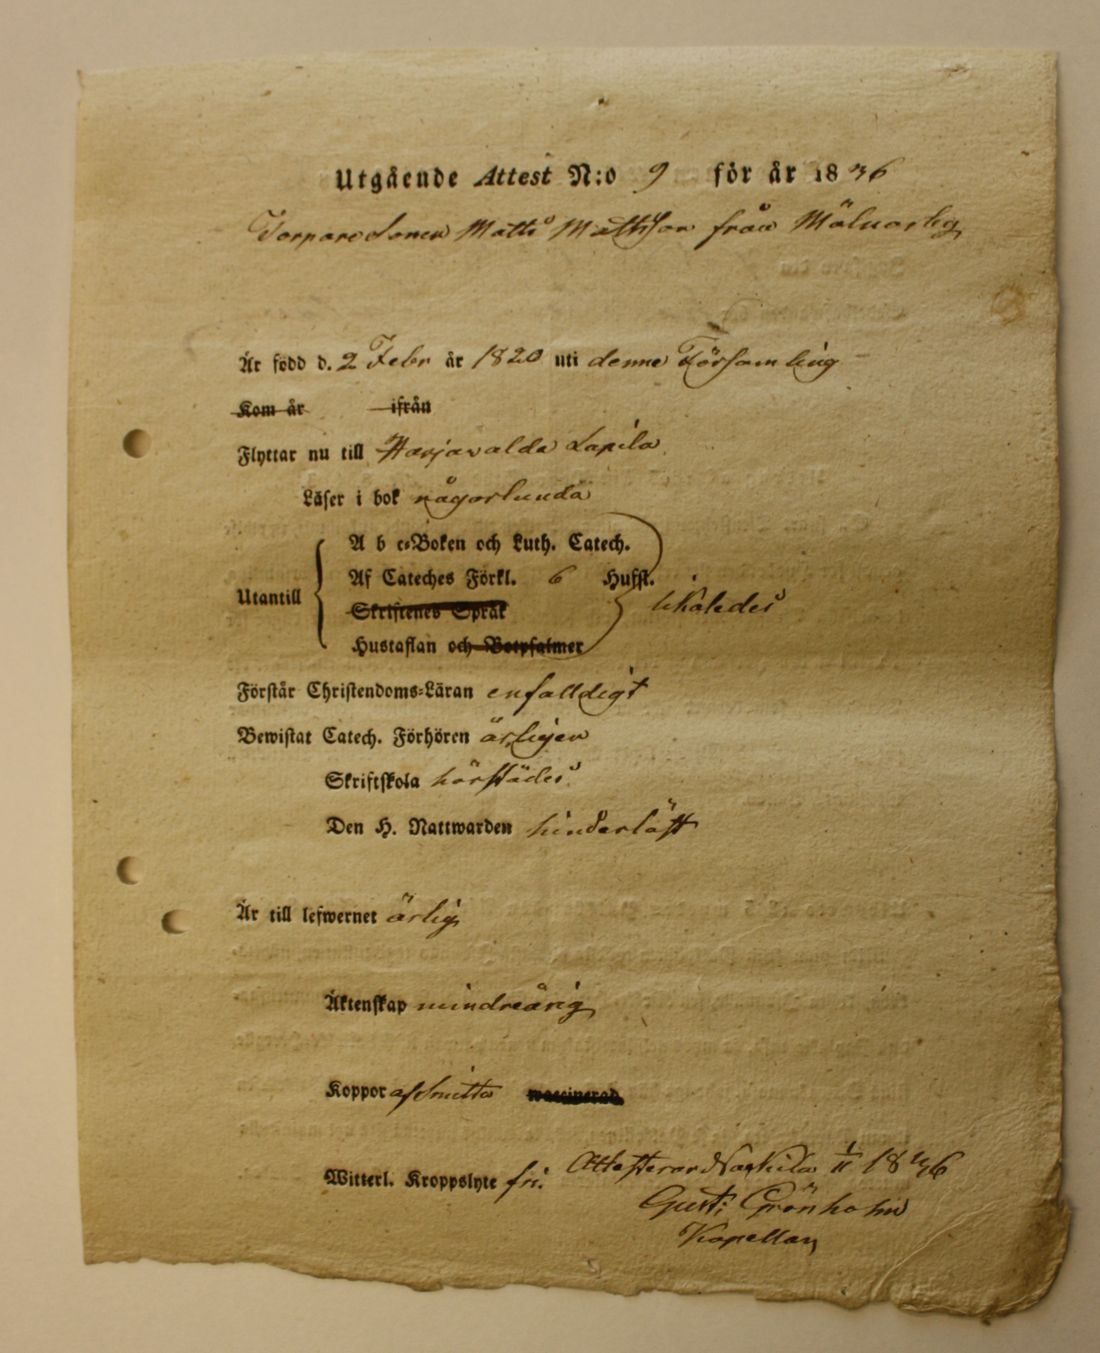 Utgående Attest N:o 9 för år 1836
Torparesonen Matts Mattsson från
Är född d. 2 Febr år 1820 uti denne Församling
Kom år ifrån
Flyttar nu till Harjavalda Lapila
Läser i bok någorlunda
A b c-Boken och Luth. Catech.
Af Cateches Förkl. 6 Hufst.
Utantill likaledes
Skriftenes Språk
Hustaflan och Botpsalmer
Förstår Christendoms-Läran enfalldigt
Bewistat Catech. Förhören årligen
Skriftskola härstädes
Den H. Nattwarden hinderlöst
Är till lefwernet ärlig
Äktenskap mindreårig
Koppor af Smitta waccinerad
Witterl. Kroppslyte fri. Attesterar Nakkila 1/11 1836
Gust: Grönholm
Kapellan